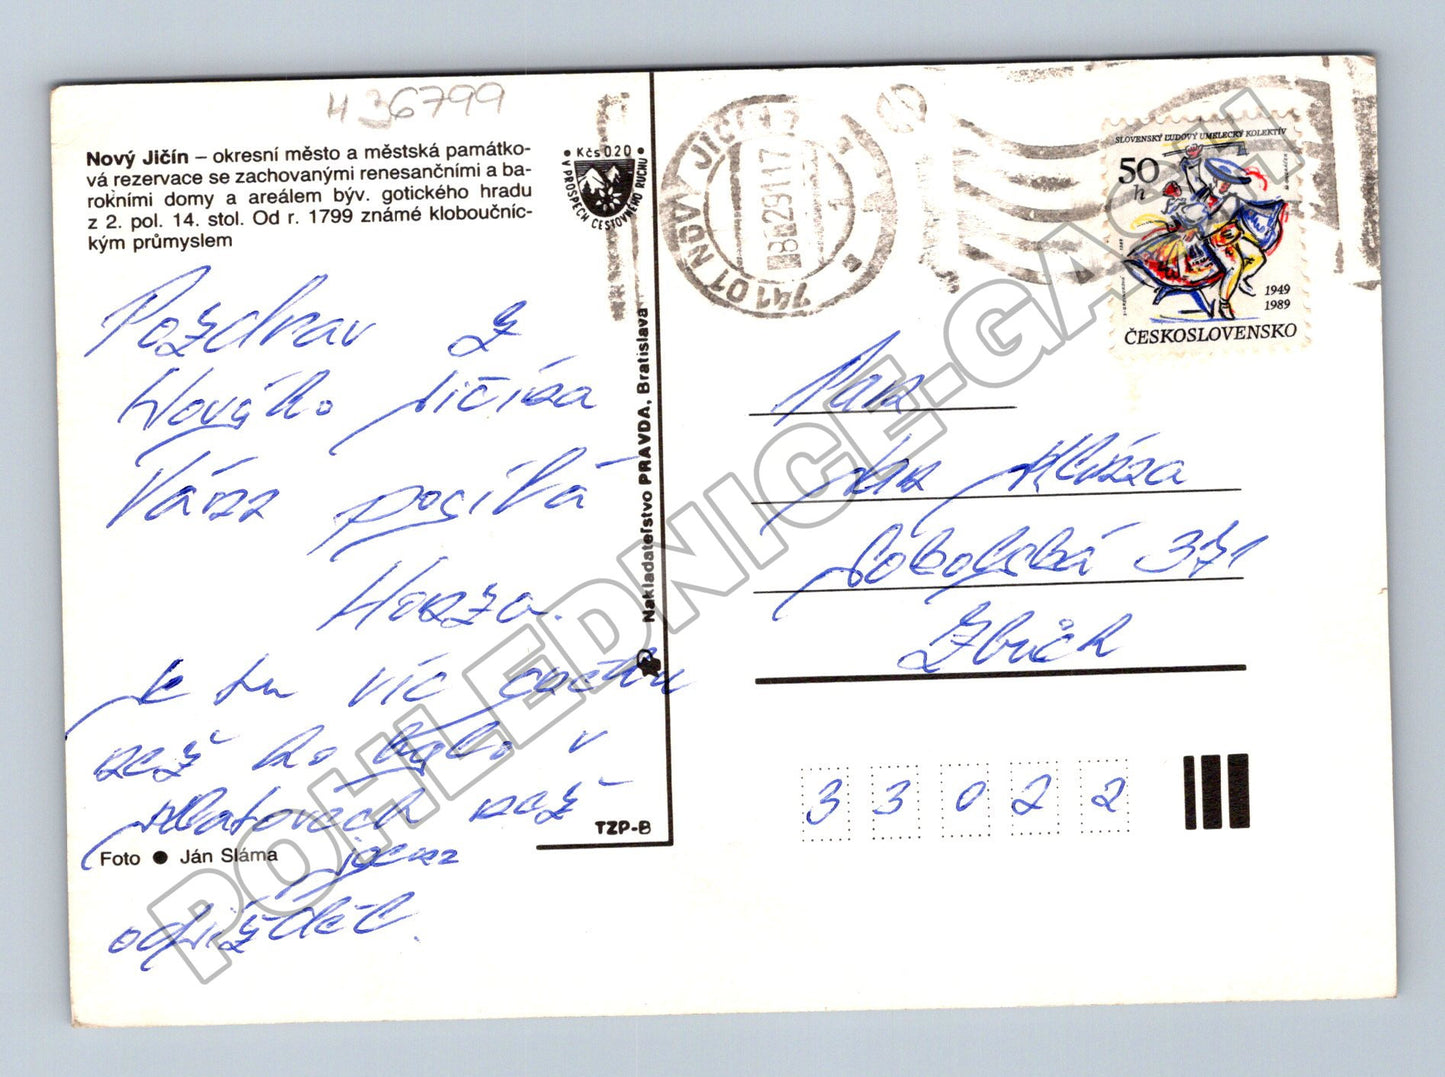 436799
Nový Jičín – okresní město a městská památko-
vá rezervace se zachovanými renesančními a ba-
rokními domy a areálem býv. gotického hradu
z 2. pol. 14. stol. Od r. 1799 známé kloboučnic-
kým průmyslem
• Kčs 020 •
V PROSPECH CESTOVNÉHO RUCHU
Pozdrav z
Nového Jičína
Vám posílá
Honza.
Je tu víc
než ho bylo v
Klatovech než
jsem
odjížděl.
Foto ● Ján Sláma
Nakladateľstvo PRAVDA, Bratislava
TZP-B
741 01 NOVÝ JIČÍN
SLOVENSKÝ ĽUDOVÝ UMELECKÝ KOLEKTÍV
50
h
1949
1989
ČESKOSLOVENSKO
Pan
Jan
Sokolská 371
Zbůch
33022
POHLEDNICE-GASH